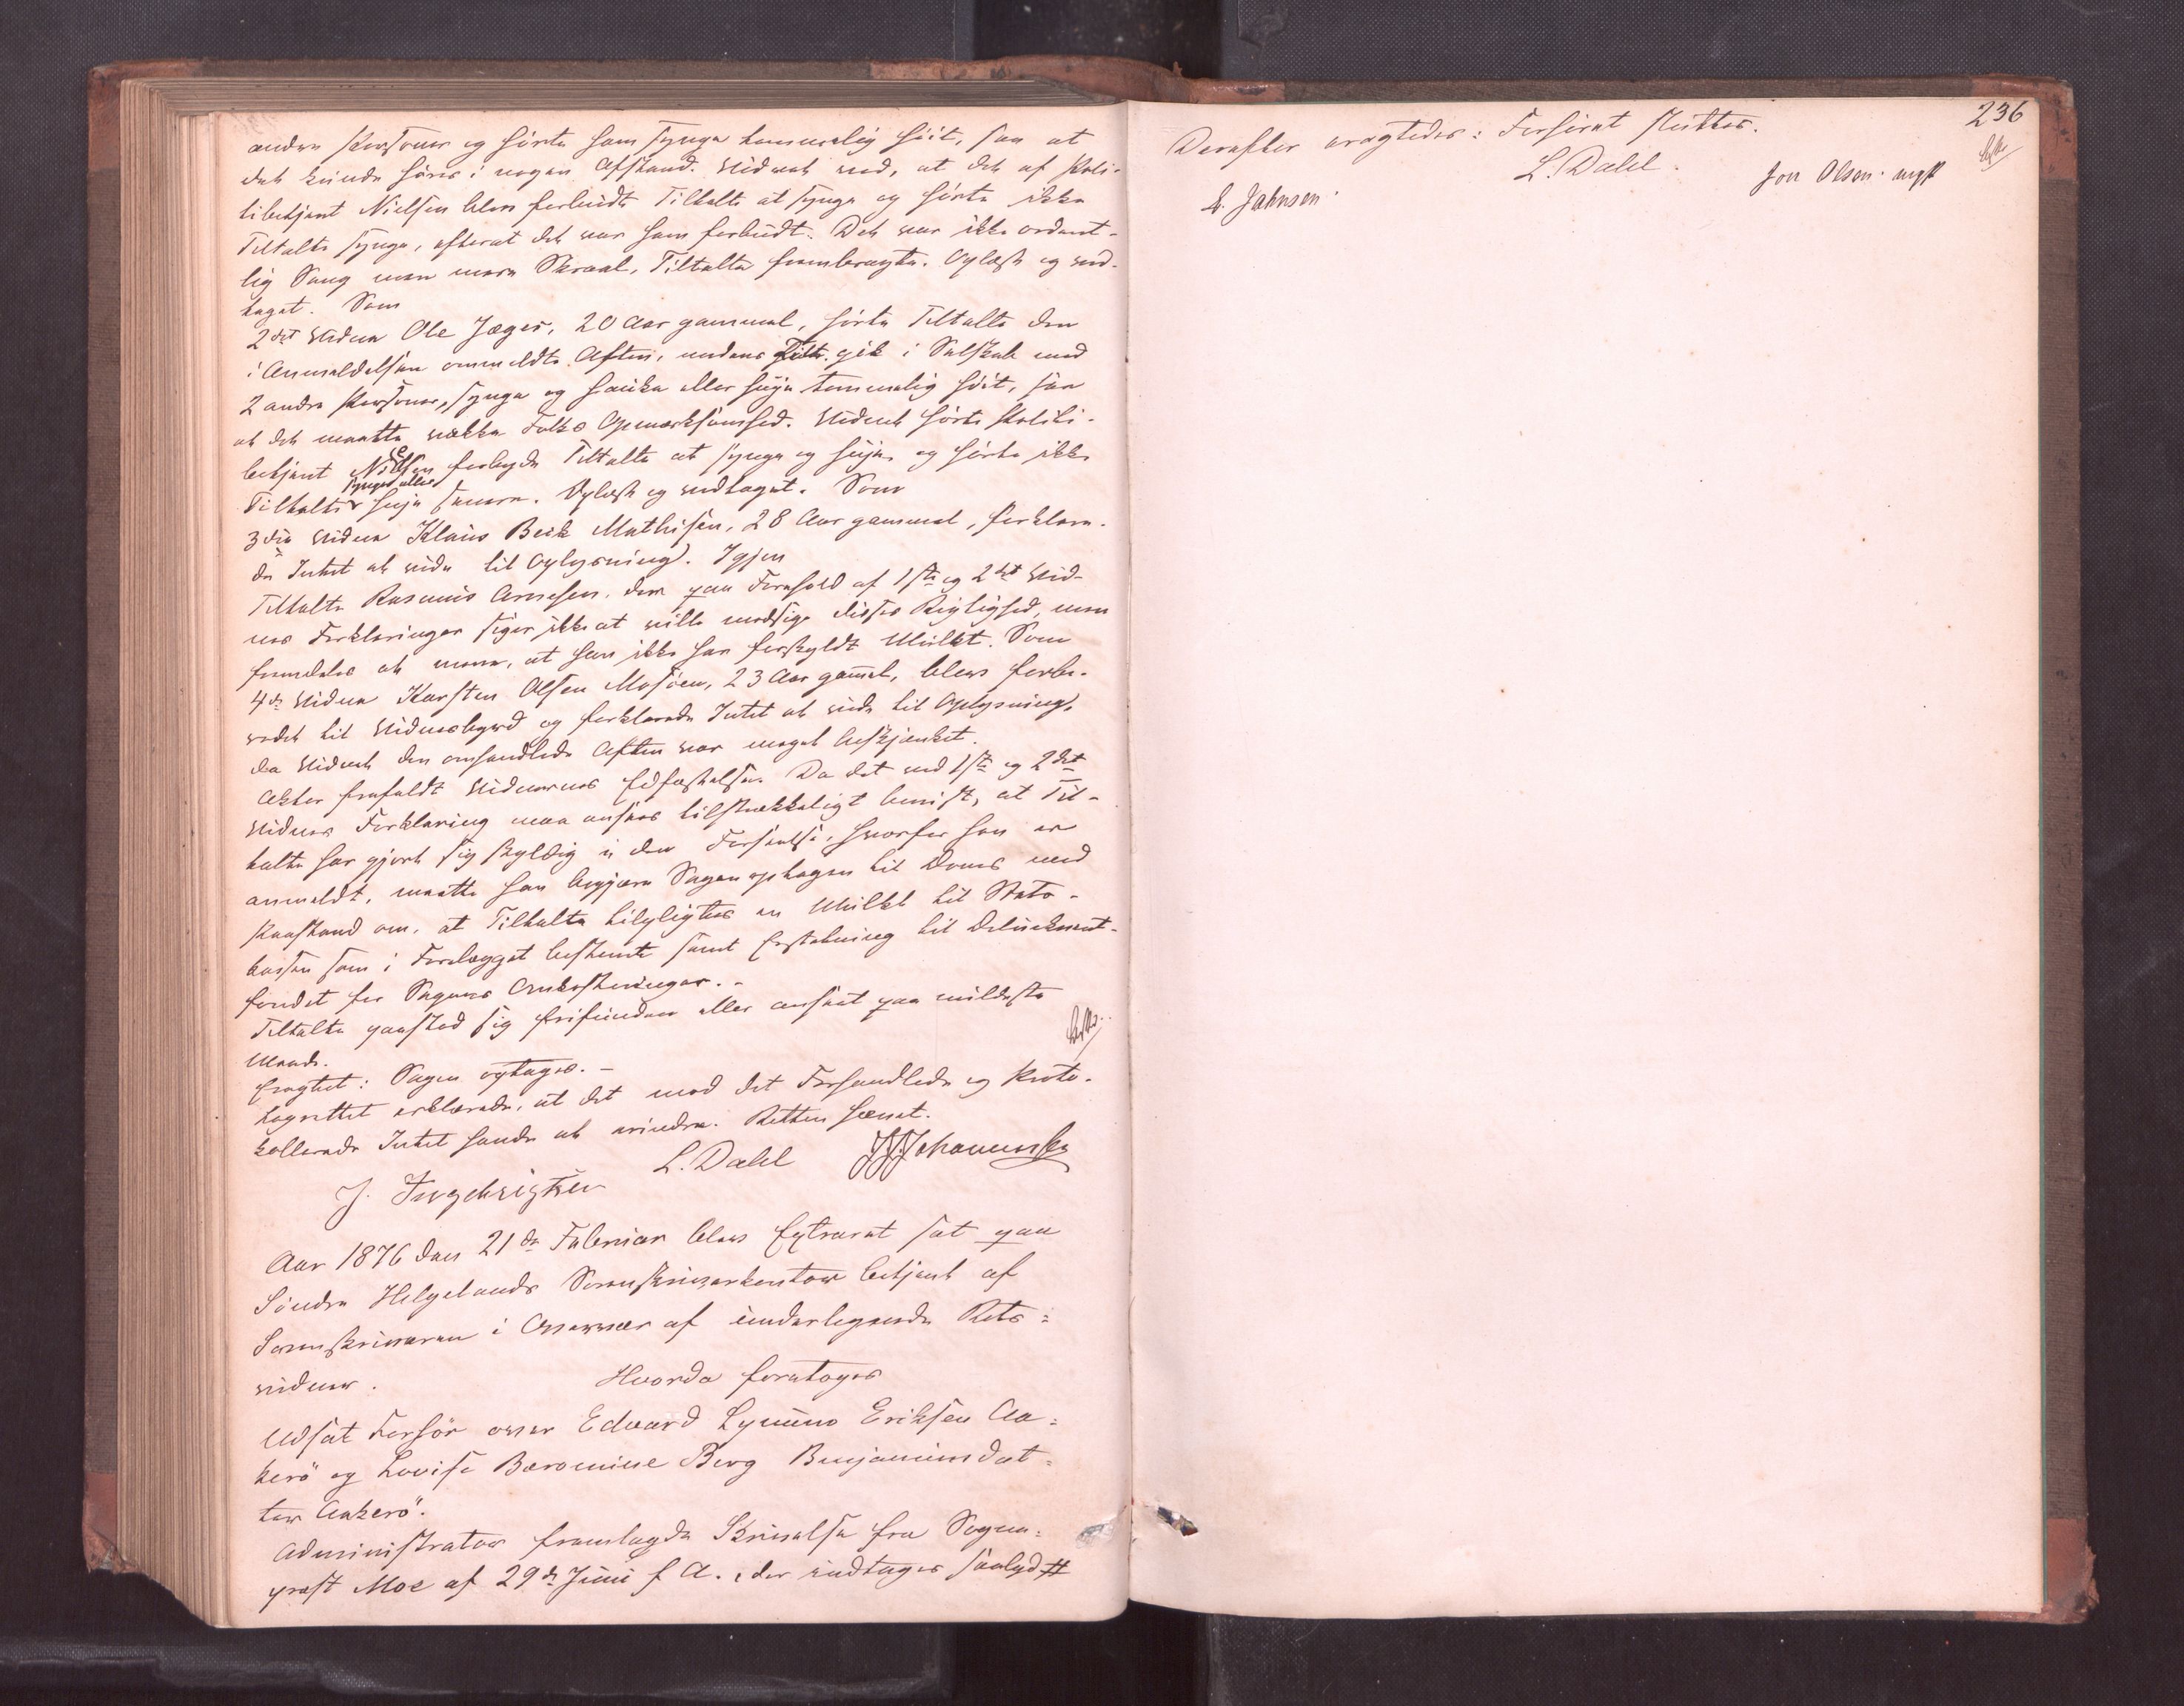 andre Personer og hørte ham synge temmelig høit, saa at
det kunde høres i nogen Afstand. Vidnet ved, at det af Poli-
tibetjent Nielsen blev forbudt Tiltalte at synge og hørte ikke
Tiltalte synge, efterat det var ham forbudt. Det var ikke ordent-
lig Sang men mere Skraal, Tiltalte frembragte. Oplæst og ved-
taget. Som
2det Vidne Ole Jæger, 20 Aar gammel, hørte Tiltalte den
i Anmeldelsen ommeldte Aften, medens Tilt. gik i Selskab med
2 andre Personer, synge og hauke eller huje temmelig høit, saa
at det maatte vække Folks Opmærksomhed. Vidnet hørte Politi-
betjent Nielsen forbyde Tiltalte at synge og huje og hørte ikke
Tiltalte synge eller huje senere. Oplæst og vedtaget. Som
3die Vidne Klaus Beck Mathisen, 28 Aar gammel, forklare-
de Intet at vide til Oplysning. Igjen
Tiltalte Rasmus Arnesen, der paa Forehold af 1ste og 2det Vid-
nes Forklaringer siger ikke at ville modsige disses Rigtighed, men
fremdeles at mene, at han ikke har forskyldt Mulkt. Som
4de Vidne Karsten Olsen Mosøen, 23 Aar gamel, blev forbe-
redet til Vidnesbyrd og forklarede Intet at vide til Oplysning,
da Vidnet den omhandlede Aften var meget beskjænket.
Aktor frafaldt Vidnernes Edfæstelse. Da det ved 1ste og 2det
Vidnes Forklaring maa ansees tilstrækkeligt bevist, at Til-
talte har gjort sig skyldig i den Forseelse, hvorfor han er
anmeldt, maatte han begjære Sagen optagen til Doms med
Paastand om, at Tiltalte tilpligtes en Mulkt til Stats-
kassen som i Forelægget bestemt samt Erstatning til Delinkvent-
fondet for Sagens Omkostninger. -
Tiltalte paastod sig frifunden eller anseet paa mildeste
Maade.
Eragtet: Sagen optages. -
Lagrettet erklærede, at det mod det Forhandlede og Proto-
kollerede Intet havde at erindre. Retten hævet.
L. Dahl
J. Ingebrigtsen
Aar 1876 den 21de Februar blev Extraret sat paa
Søndre Helgelands Sorenskriverkontor betjent af
Sorenskriveren i Overvær af underlegnede Rets=
vidner.
Hvorda foretoges
Udsat Forhør over Edvard Lynum Eriksen Aa=
kerø og Lovise Beromine Berg Benjaminsdat=
ter Aakerø.
Administrator fremlagde Skrivelse fra Sogne=
præst Moe af 29de Juni f A., der indtages saalyd #
236
Derefter eragtedes: Forhøret sluttes.
L. Dahl.
Jon Olsen
Jahnsen